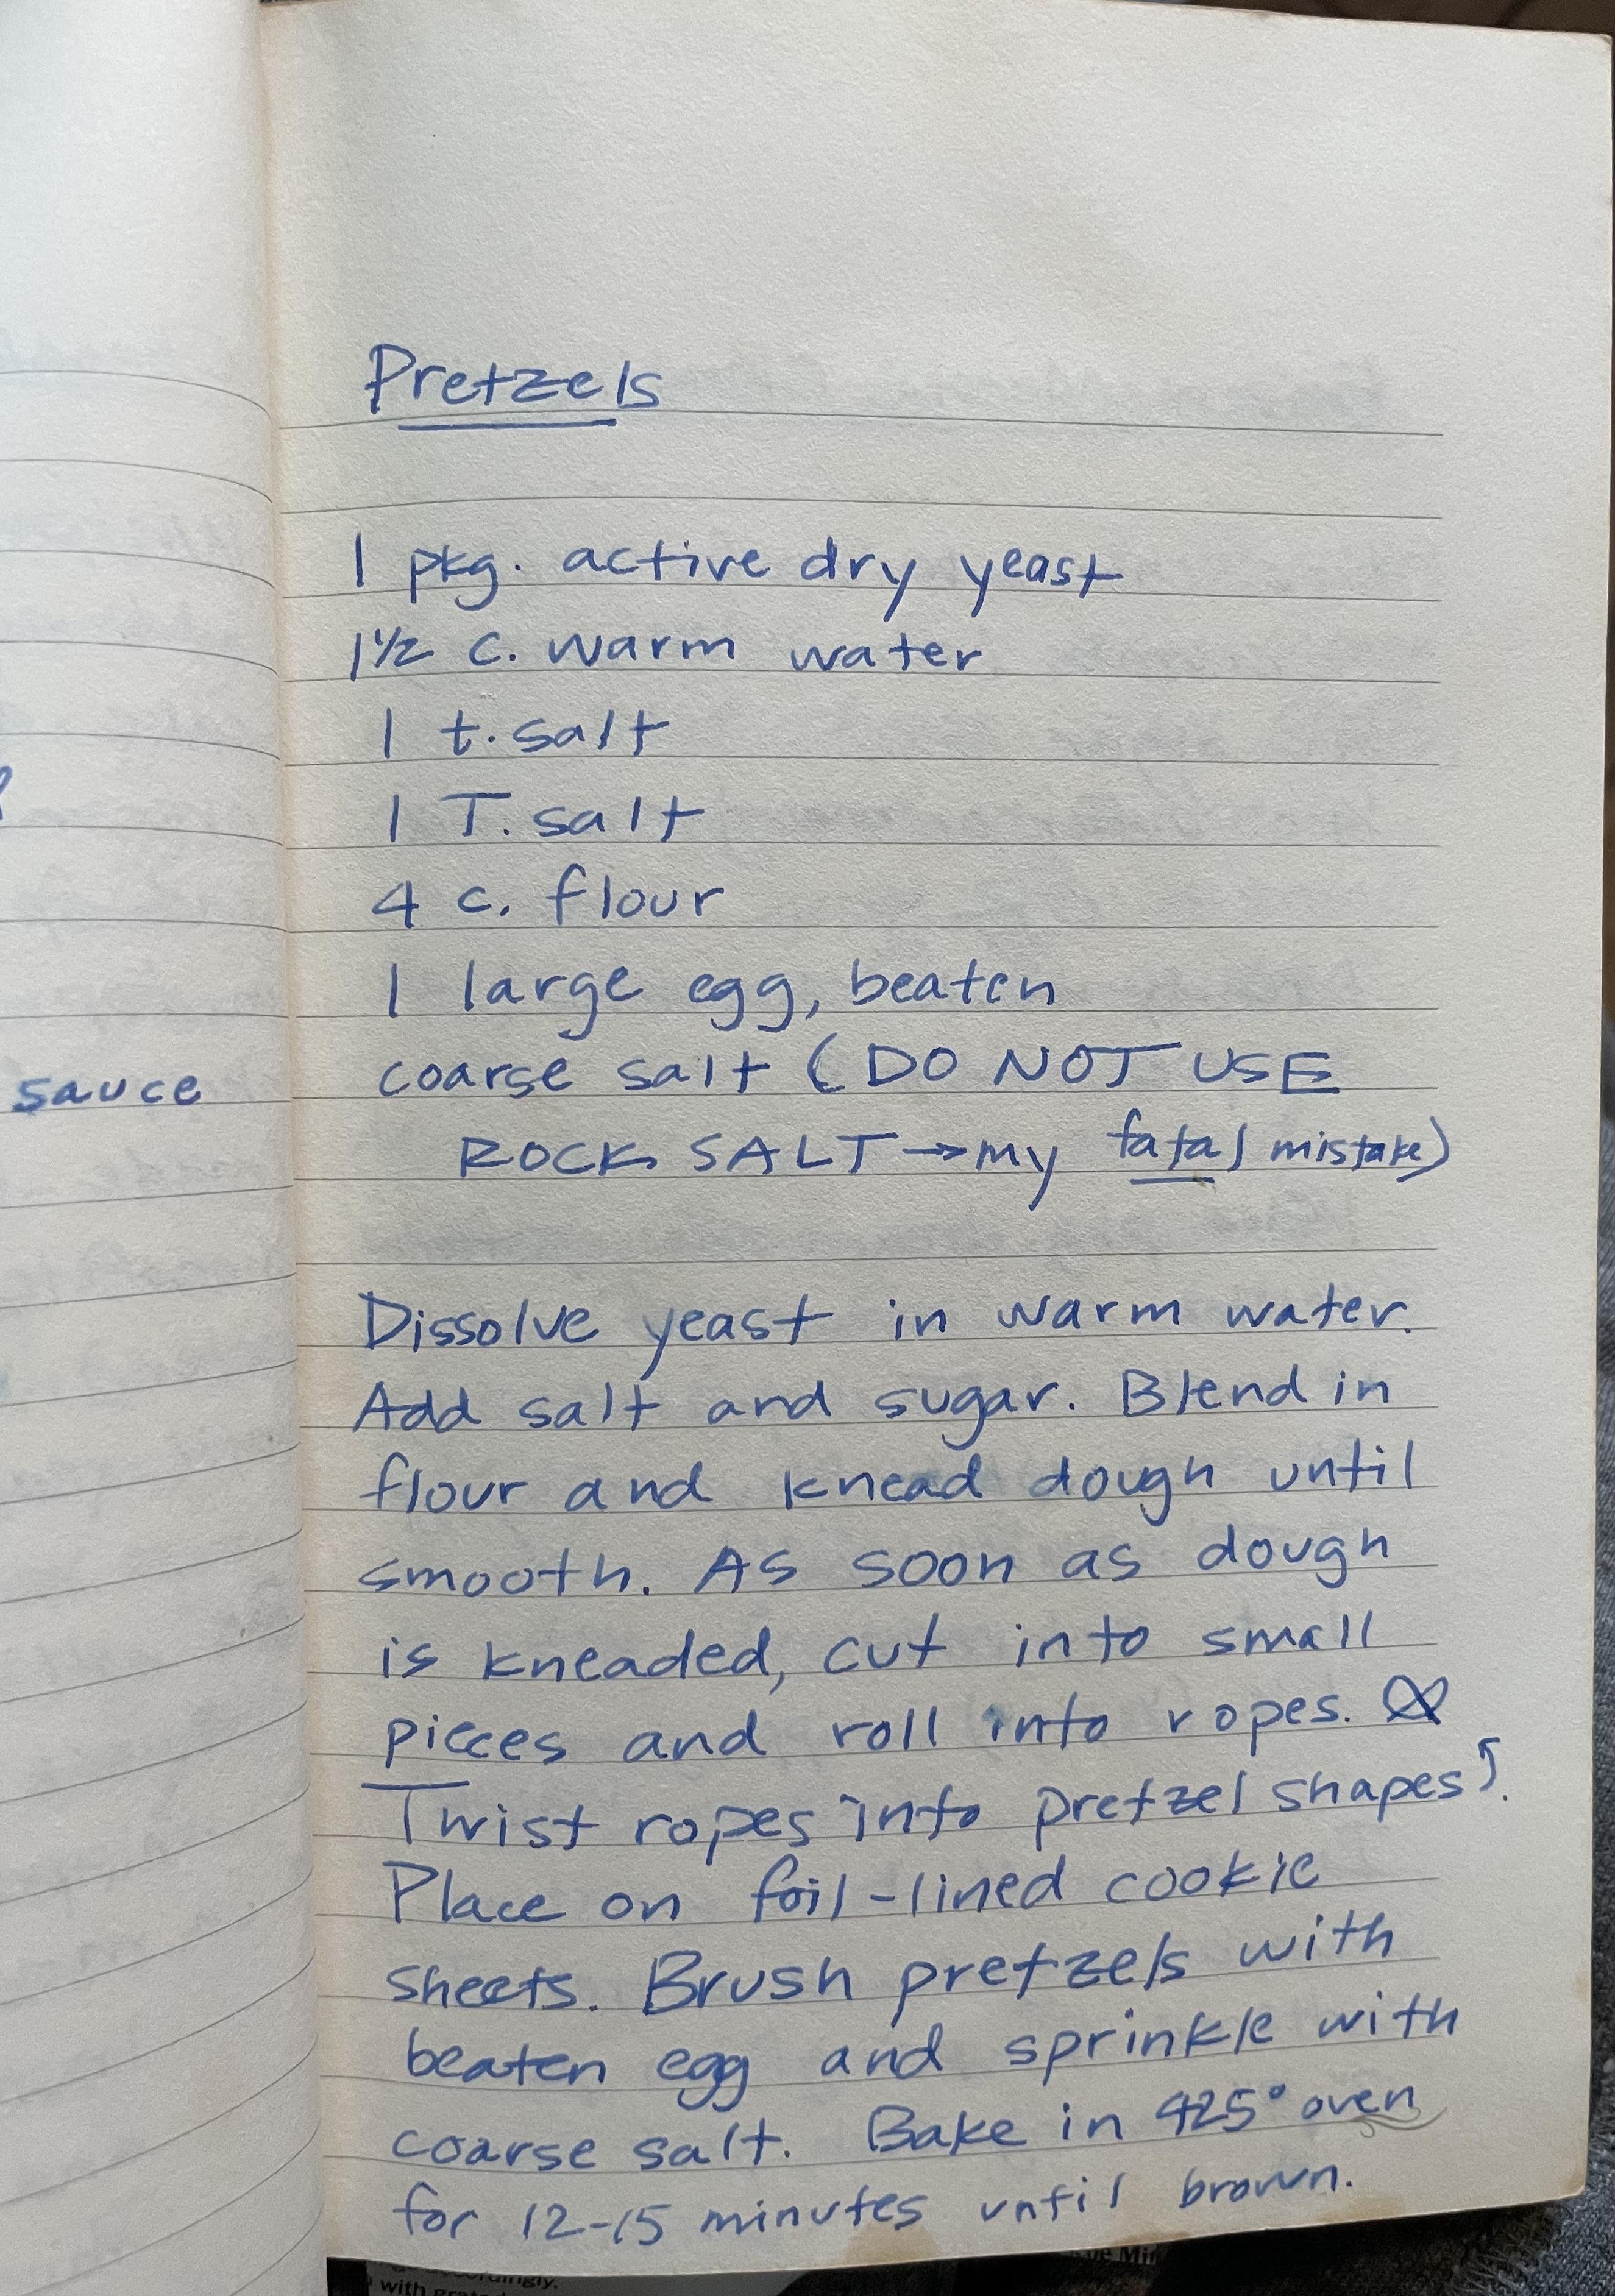 Pretzels
1 pkg. active dry yeast
1 1/2 c. warm water
1 t. salt
1 T. salt
4 c. flour
1 large egg, beaten
coarse salt (DO NOT USE
ROCK SALT → my fatal mistake)
Dissolve yeast in warm water.
Add salt and sugar. Blend in
flour and knead dough until
smooth. As soon as dough
is kneaded, cut into small
pieces and roll into ropes.
Twist ropes into pretzel shapes.
Place on foil-lined cookie
sheets. Brush pretzels with
beaten egg and sprinkle with
coarse salt. Bake in 425° oven
for 12-15 minutes until brown.
sauce